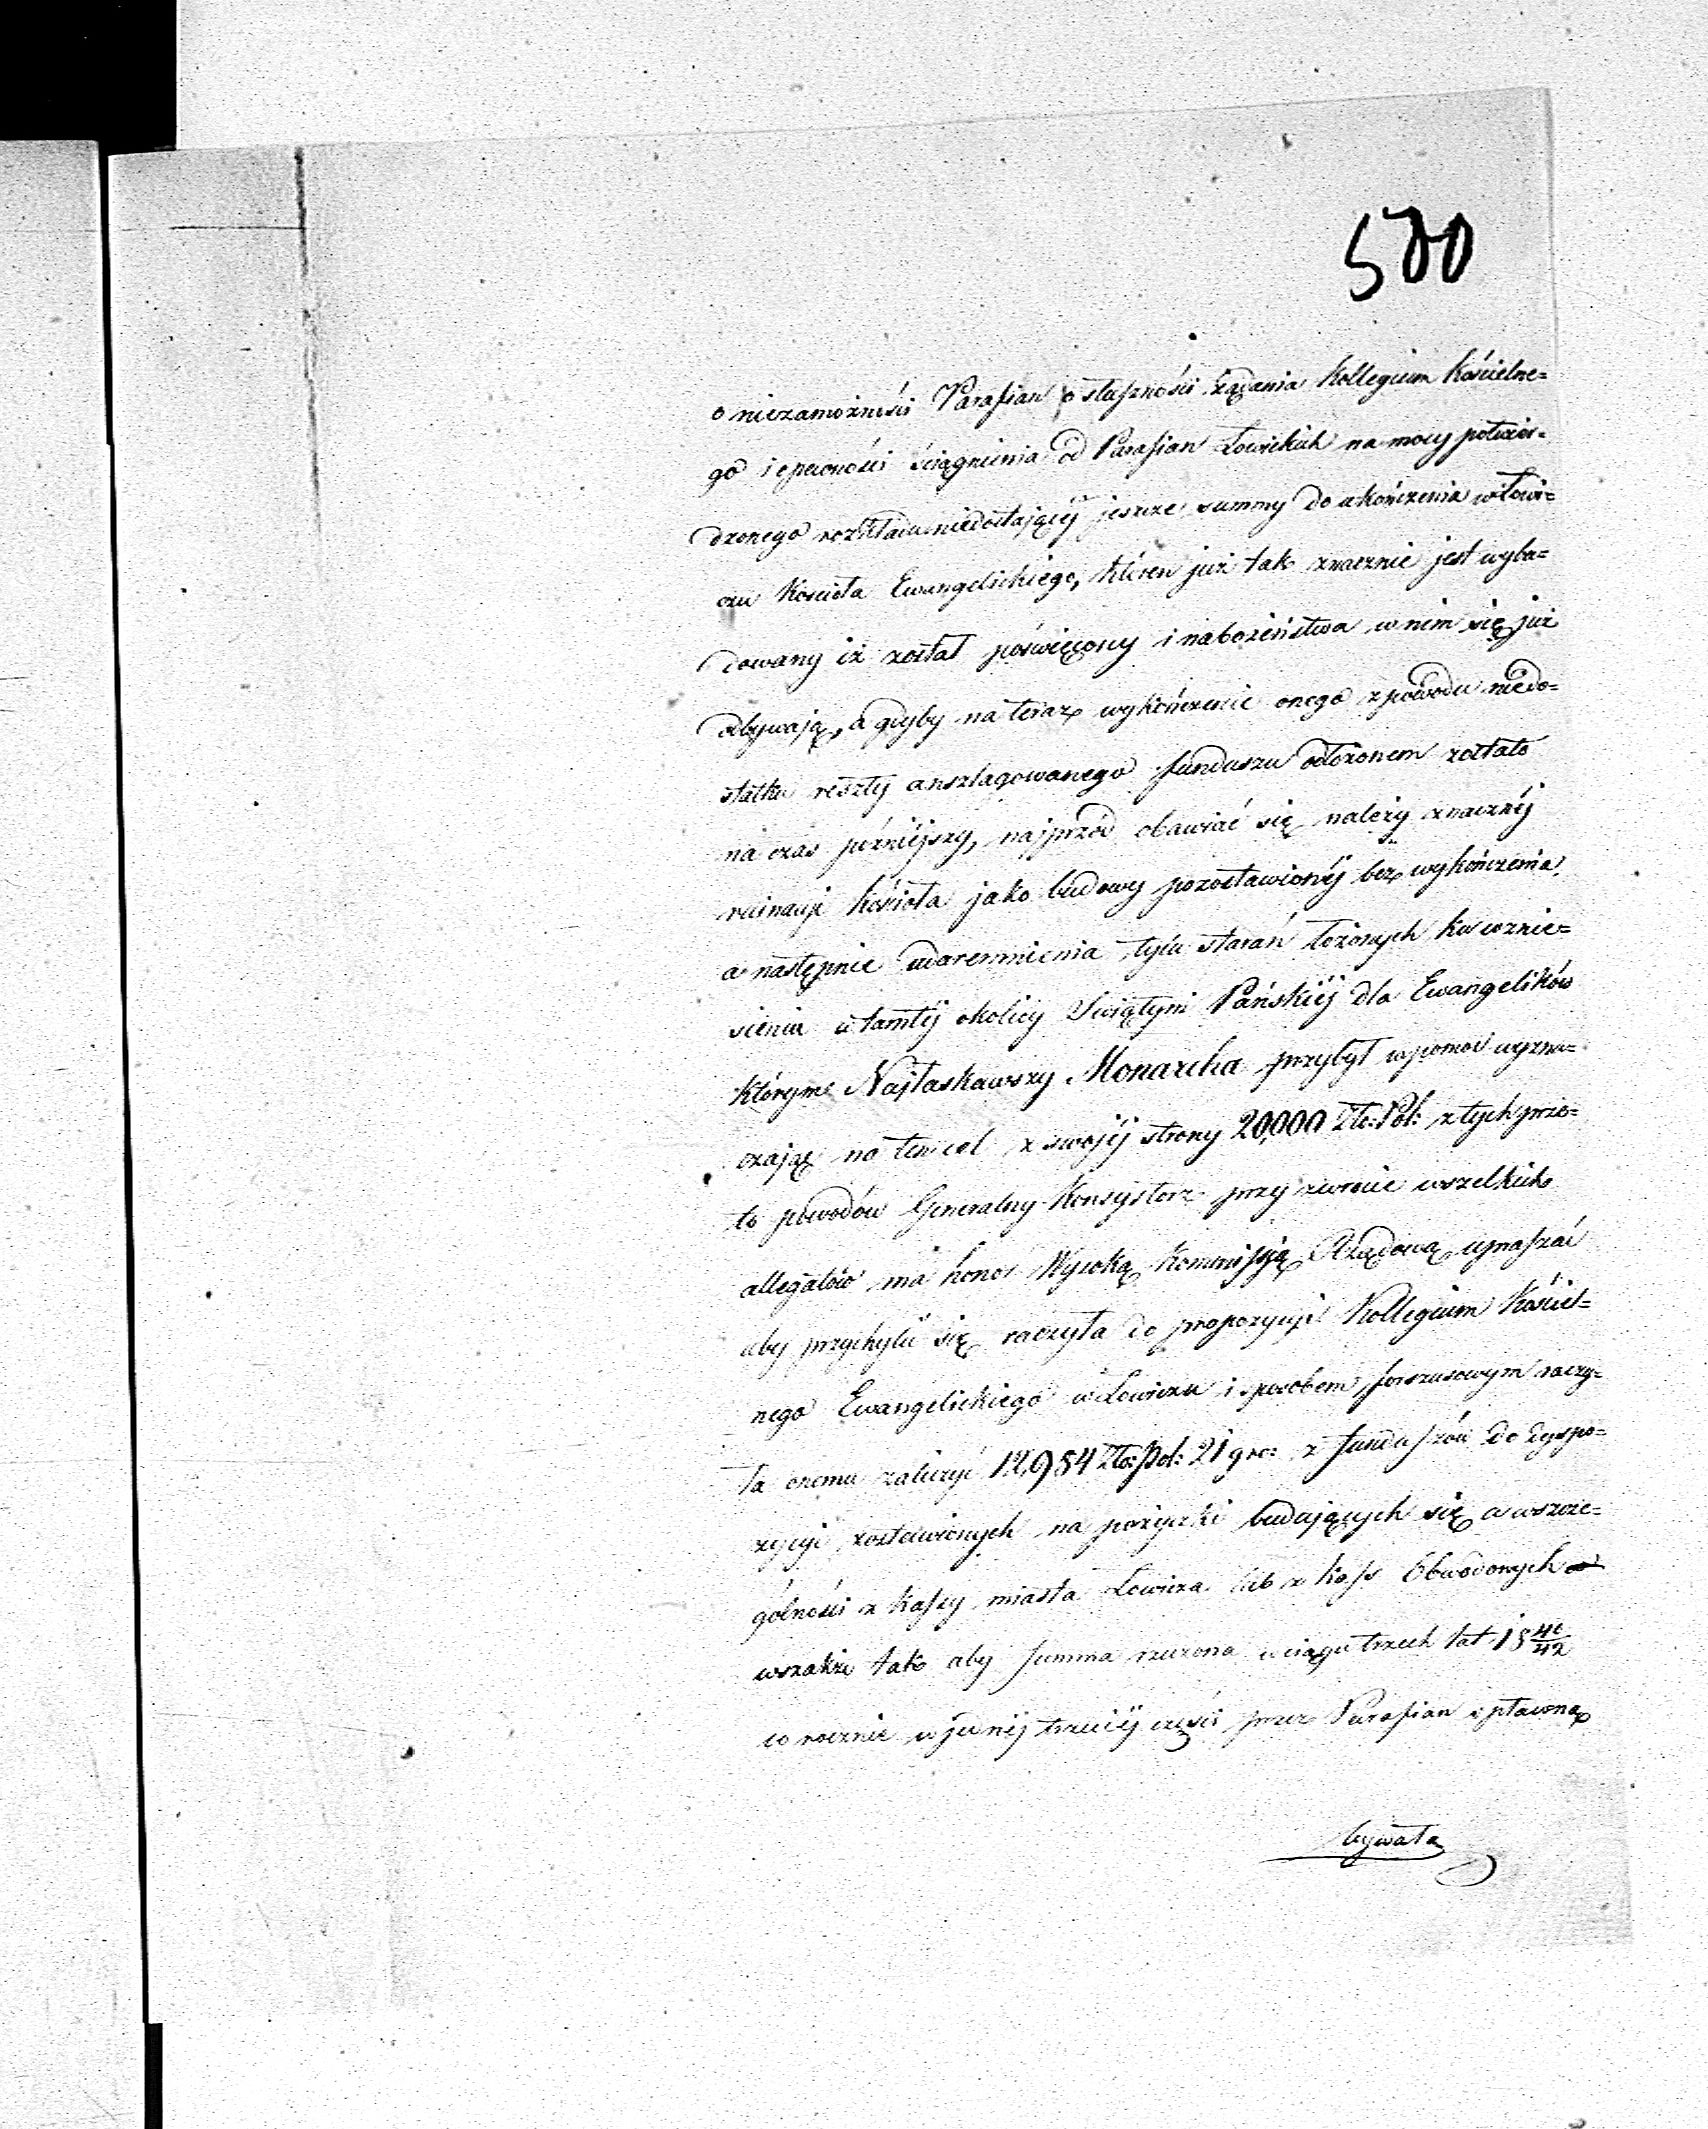 500
o niezamożności Parafian o słuszności żądania Kollegium Kościelne=
go i o pewności ściągnienia od Parafian Łowickich na mocy potwier=
dzonego rozkładu niedostającéj jeszcze summy do ukończenia w Łowi=
czu Kościoła Ewangelickiego, któren już tak znacznie jest wybu=
dowany iż został poświęcony i nabożeństwa w nim się już
odbywają, a gdyby na teraz wykończenie onego z powodu niedo=
statku reszty anszlagowanego funduszu odłożonem zostało
na czas późniéjszy, najprzód obawiać się należy znacznéj
ruinacji kościoła jako budowy pozostawionéj bez wykończenia,
a następnie udaremnienia tylu starań łożonych ku wznie=
sieniu w tamtéj okolicy Świątyni Pańskiéj dla Ewangelików
którym Najłaskawszy Monarcha przybył w pomoc wyzna=
czając na ten cel z swojéj strony 20,000 Złt: Pol: z tych prze=
to powodów Generalny Konsystorz przy zwrocie wszelkich
allegatów ma honor Wysoką Kommissją Rządową upraszać
aby przychylić się raczyła do propozycji Kollegium Kościel=
nego Ewangelickiego w Łowiczu i sposobem forszusowym raczy=
ła onemu zaliczyć 12,984 Złt: Pol: 21 gro: z funduszów do dyspo=
zycji zostawionych na pożyczki budujących się a w szcze=
gólności z kassy miasta Łowicza lub z kass Obwodowych
wszakże tak aby summa rzeczona w ciągu trzech lat 18 40/42
co rocznie w jednéj trzeciéj części przez Parafian spłacona
bywała